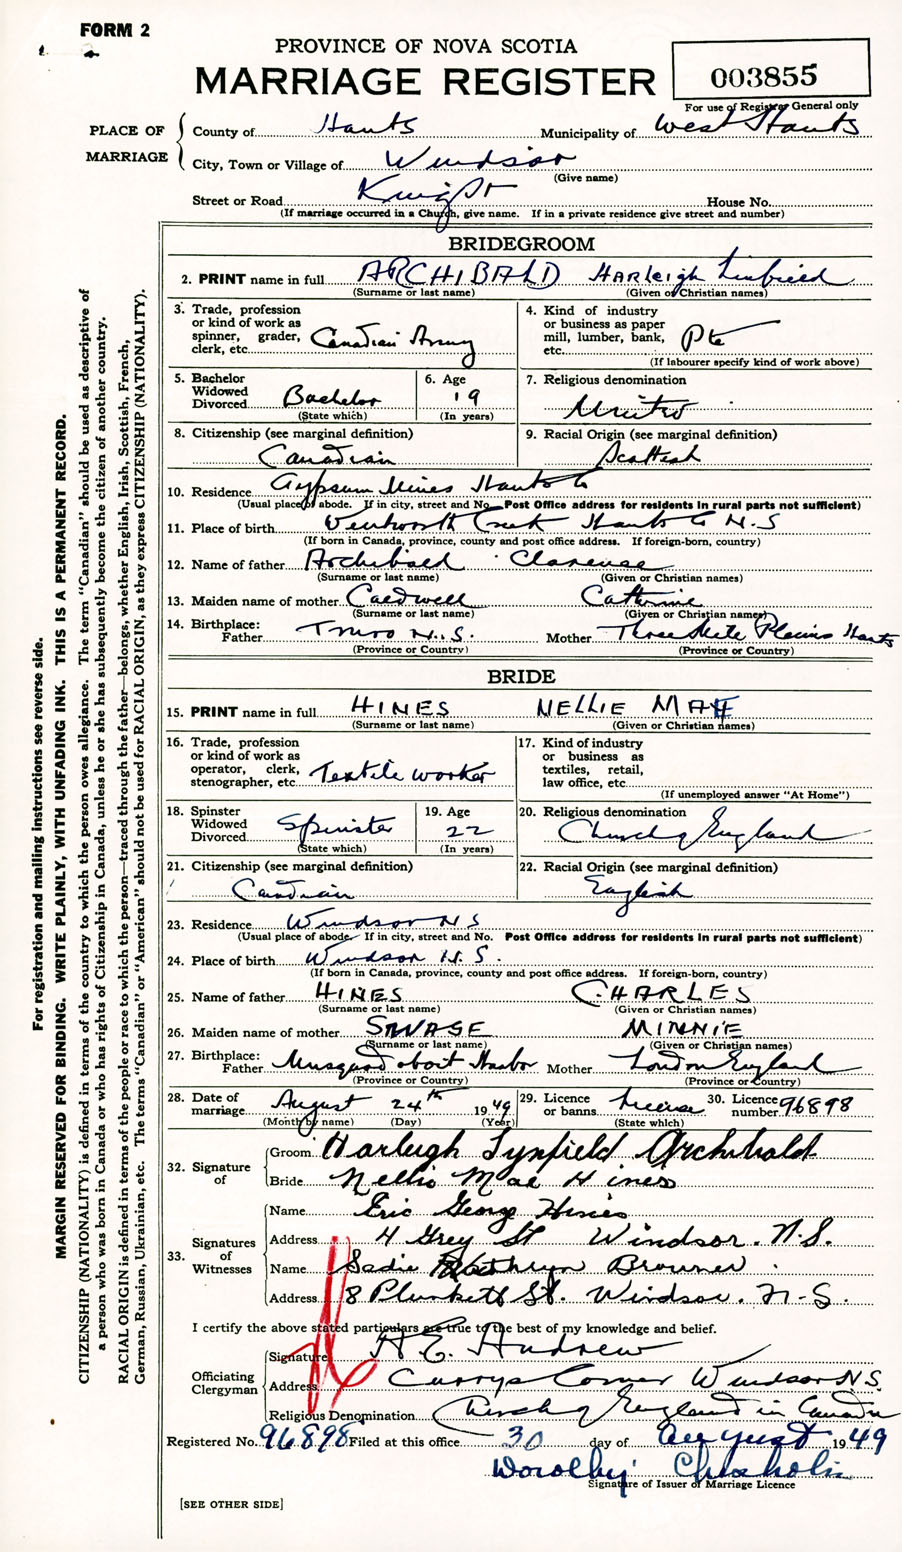 FORM 2
PROVINCE OF NOVA SCOTIA
MARRIAGE REGISTER
003855
For use of Registrar General only
PLACE OF MARRIAGE
County of Hants Municipality of West Hants
City, Town or Village of Windsor
(Give name)
Street or Road King St House No.
(If marriage occurred in a Church, give name. If in a private residence give street and number)
BRIDEGROOM
2. PRINT name in full ARCHIBALD Harleigh Linfield
(Surname or last name) (Given or Christian names)
3. Trade, profession or kind of work as spinner, grader, clerk, etc. Canadian Army
4. Kind of industry or business as paper mill, lumber, bank, etc. Pte
(If labourer specify kind of work above)
5. Bachelor Widowed Divorced Bachelor
(State which)
6. Age 19
(In years)
7. Religious denomination
United
8. Citizenship (see marginal definition)
Canadian
9. Racial Origin (see marginal definition)
Scottish
10. Residence Gypsum Mines Hants Co
(Usual place of abode. If in city, street and No. Post Office address for residents in rural parts not sufficient)
11. Place of birth Wentworth Creek Hants Co N.S
(If born in Canada, province, county and post office address. If foreign-born, country)
12. Name of father Archibald Clarence
(Surname or last name) (Given or Christian names)
13. Maiden name of mother Caldwell Catherine
(Surname or last name) (Given or Christian names)
14. Birthplace: Father Truro N.S. Mother Three Mile Plains Hants
(Province or Country) (Province or Country)
BRIDE
15. PRINT name in full HINES NELLIE MAE
(Surname or last name) (Given or Christian names)
16. Trade, profession or kind of work as operator, clerk, stenographer, etc. Textile worker
17. Kind of industry or business as textiles, retail, law office, etc.
(If unemployed answer "At Home")
18. Spinster Widowed Divorced Spinster
(State which)
19. Age 22
(In years)
20. Religious denomination
Church of England
21. Citizenship (see marginal definition)
Canadian
22. Racial Origin (see marginal definition)
English
23. Residence Windsor N S
(Usual place of abode. If in city, street and No. Post Office address for residents in rural parts not sufficient)
24. Place of birth Windsor N.S.
(If born in Canada, province, county and post office address. If foreign-born, country)
25. Name of father HINES CHARLES
(Surname or last name) (Given or Christian names)
26. Maiden name of mother SAVAGE MINNIE
(Surname or last name) (Given or Christian names)
27. Birthplace: Father Musquodoboit Harbor Mother London England
(Province or Country) (Province or Country)
28. Date of marriage August 24th 1949
(Month by name) (Day) (Year)
29. Licence or banns License
(State which)
30. Licence number 96898
32. Signature of
Groom Harleigh Lynfield Archibald
Bride Nellie Mae Hines
33. Signatures of Witnesses
Name Eric George Hines
Address 4 Grey St Windsor. N.S.
Name Sadie Kathryn Browner.
Address 8 Plunkett St. Windsor. N.S.
I certify the above stated particulars are true to the best of my knowledge and belief.
Officiating Clergyman
Signature H E. Andrew
Address Currys Corner Windsor N.S.
Religious Denomination Church of England in Canada
Registered No. 96898 Filed at this office 30 day of August 1949
Dorothy Chisholm
Signature of Issuer of Marriage Licence
[SEE OTHER SIDE]
For registration and mailing instructions see reverse side.
MARGIN RESERVED FOR BINDING. WRITE PLAINLY, WITH UNFADING INK. THIS IS A PERMANENT RECORD.
CITIZENSHIP (NATIONALITY) is defined in terms of the country to which the person owes allegiance. The term "Canadian" should be used as descriptive of
a person who was born in Canada or who has rights of Citizenship in Canada, unless he or she has subsequently become the citizen of another country.
RACIAL ORIGIN is defined in terms of the people or race to which the person—traced through the father—belongs, whether English, Irish, Scottish, French,
German, Russian, Ukrainian, etc. The terms "Canadian" or "American" should not be used for RACIAL ORIGIN, as they express CITIZENSHIP (NATIONALITY).